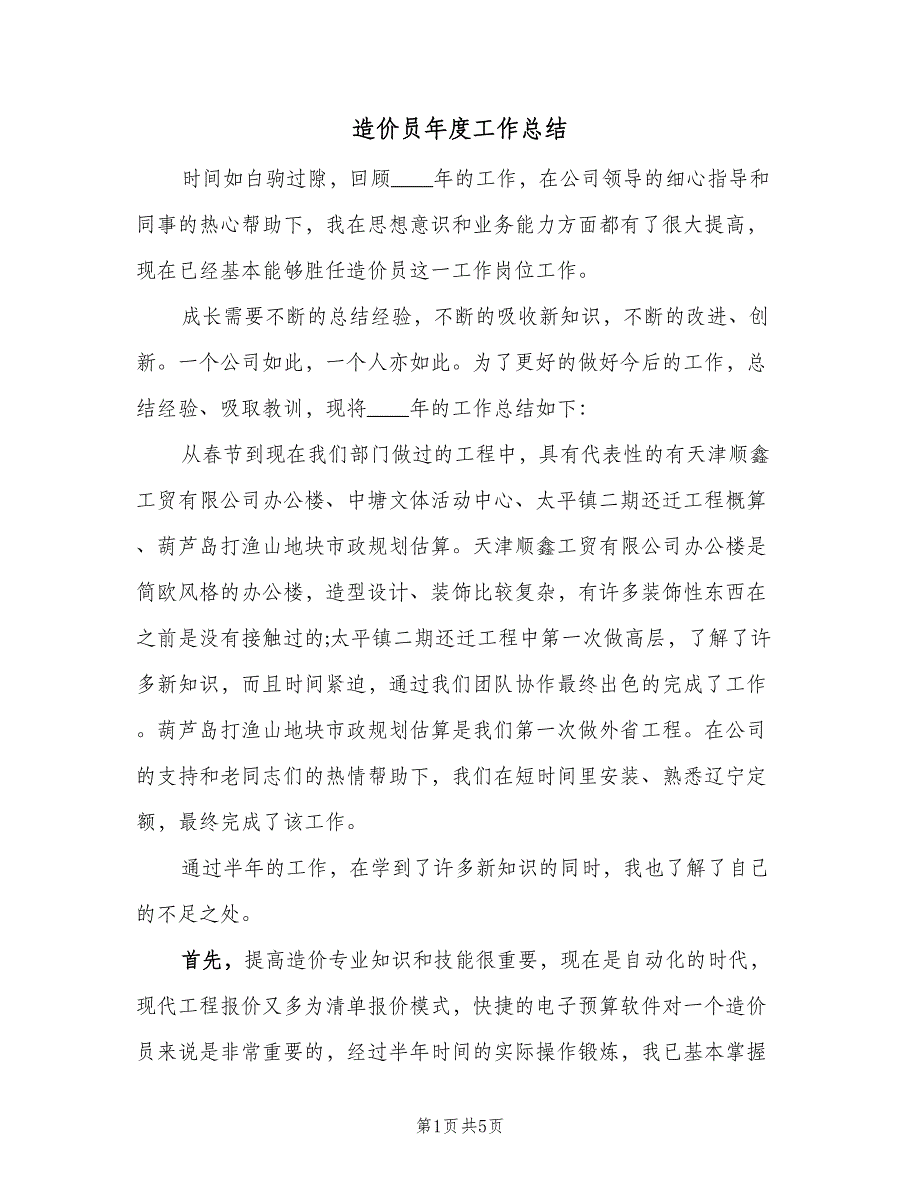 造价员年度工作总结
时间如白驹过隙，回顾____年的工作，在公司领导的细心指导和
同事的热心帮助下，我在思想意识和业务能力方面都有了很大提高，
现在已经基本能够胜任造价员这一工作岗位工作。
成长需要不断的总结经验，不断的吸收新知识，不断的改进、创
新。一个公司如此，一个人亦如此。为了更好的做好今后的工作，总
结经验、吸取教训，现将____年的工作总结如下：
从春节到现在我们部门做过的工程中，具有代表性的有天津顺鑫
工贸有限公司办公楼、中塘文体活动中心、太平镇二期还迁工程概算
、葫芦岛打渔山地块市政规划估算。天津顺鑫工贸有限公司办公楼是
简欧风格的办公楼，造型设计、装饰比较复杂，有许多装饰性东西在
之前是没有接触过的;太平镇二期还迁工程中第一次做高层，了解了许
多新知识，而且时间紧迫，通过我们团队协作最终出色的完成了工作
。葫芦岛打渔山地块市政规划估算是我们第一次做外省工程。在公司
的支持和老同志们的热情帮助下，我们在短时间里安装、熟悉辽宁定
额，最终完成了该工作。
通过半年的工作，在学到了许多新知识的同时，我也了解了自己
的不足之处。
首先，提高造价专业知识和技能很重要，现在是自动化的时代，
现代工程报价又多为清单报价模式，快捷的电子预算软件对一个造价
员来说是非常重要的，经过半年时间的实际操作锻炼，我已基本掌握
第1页共5页